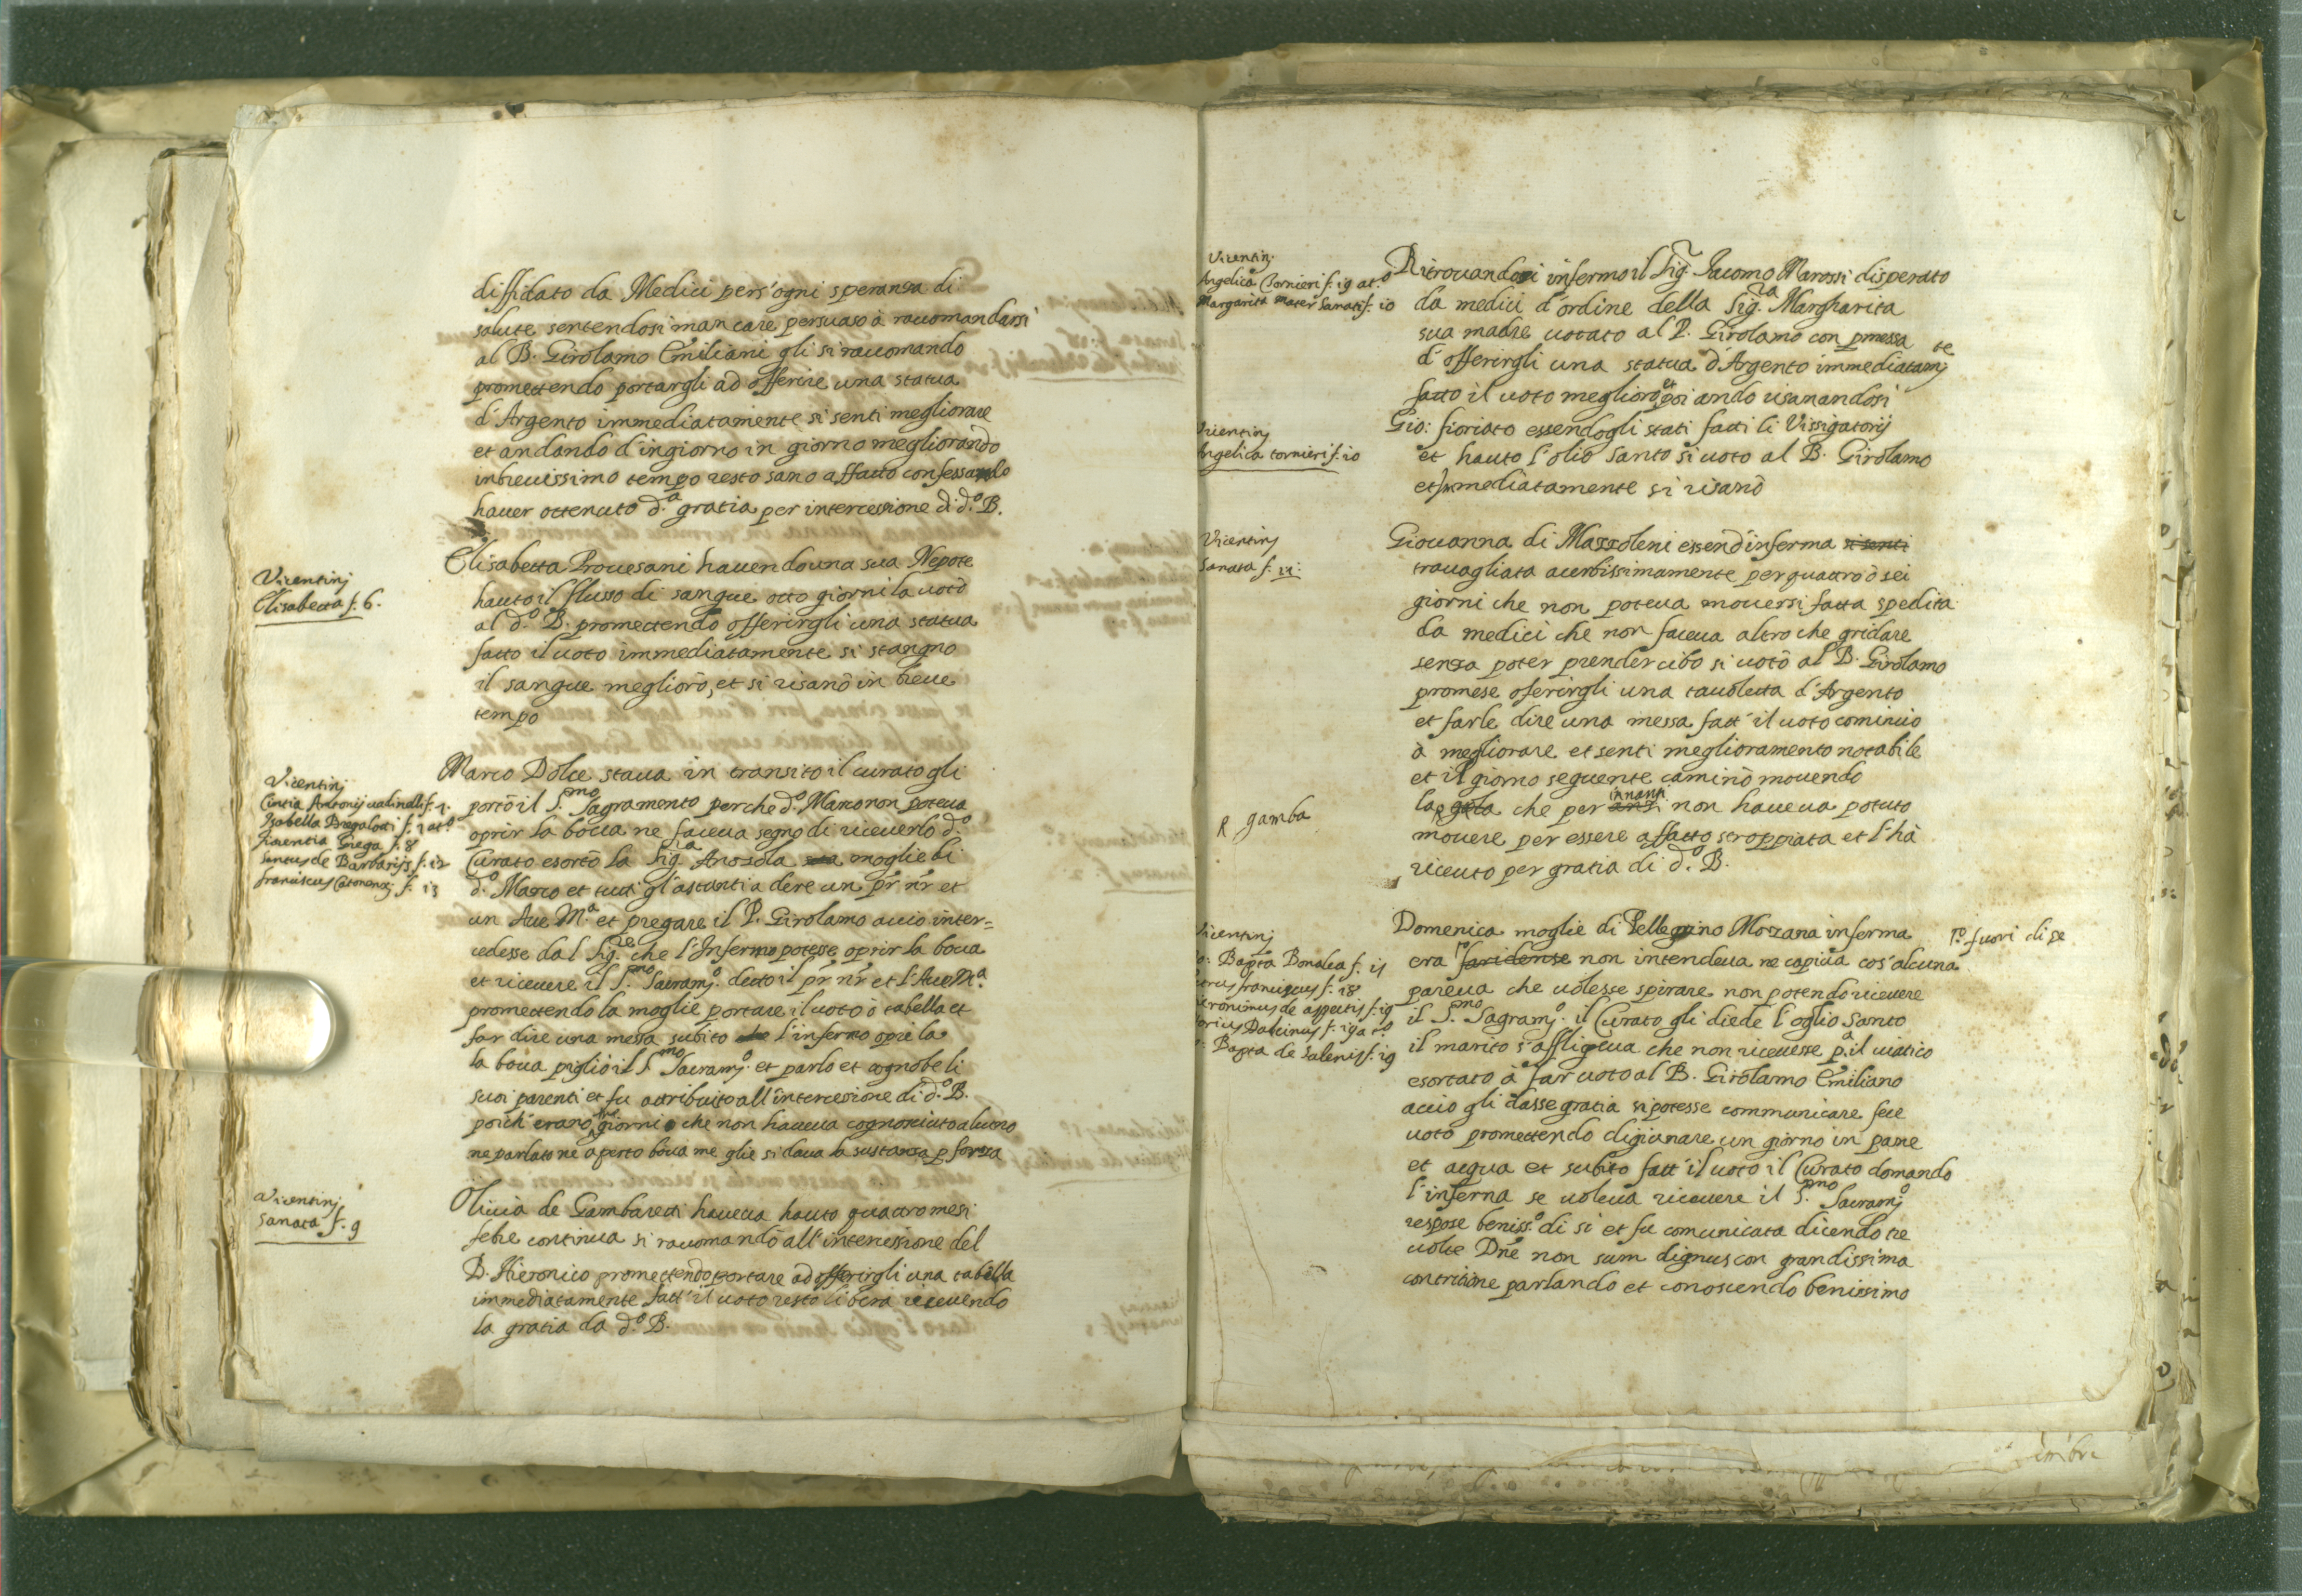 diffidato da Medici pers'ogni speranza di
salute sentendosi mancare persuaso à raccomandarsi
al B. Girolamo Emiliani gli si raccomando
promettendo portargli ad offerire una statua
d'Argento immediatamente si senti megliorare
et andando d'ingiorno in giorno megliorando
inbrevissimo tempo resto sano affatto confessando
haver ottenuto d.ª gratia per intercessione di d.º B.
Vicentinj
Elisabetta f. 6.
Elisabetta Provesani havendo una sua Nepote
hauto il flusso di sangue otto giorni la votò
al d.º B. promettendo offerirgli una statua
fatto il voto immediatamente si stangno
il sangue megliorò, et si risanò in breve
tempo
Vicentinj
Cintia Antonij f. 7.
Isabella Bregalotti f. 7 at.º
Fiorentia Grega f. 8
Santus de Barbarijs f. 12
franciscus f. 13
Marco Dolce stava in transito il curato gli
portò il S.mo Sagramento perche d.º Marco non poteva
oprir la bocca ne faceva segno di riceverlo d.º
Curato esortò la Sig.ra Anzola sua moglie di
d.º Marco et tutti gl'astanti a dire un pr̃ nr̃ et
un Ave M.ª et pregare il P. Girolamo accio inter=
cedesse dal Sig.re che l'Infermo potesse oprir la bocca
et ricevere il S.mo Sacram.º detto il pr̃ nr̃ et l'Ave M.ª
promettendo la moglie portare il voto ò tabella et
far dire una messa subito l'infermo oprì la
la bocca pigliò il S.mo Sacram.º et parlo et cognobe li
suoi parenti et fu attribuito all'intercessione di d.º B.
poich'erano giorni che non haveva cognosciuto alcuno
ne parlato ne aperto bocca me glie si dava la sustanza p forza
Vicentinj
Sanata f. 9
Olivia de Gambaretti haveva hauto quattro mesi
febre continua si raccomandò all'intercessione del
B. Hieronico promettendo portare ad offerirgli una tabella
immediatamente fatt'il voto restò libera ricevendo
la gratia da d.º B.
Vicentinj
Angelica Tornieri f. 19 at.º
Margarita Mater Sanati f. 10
Ritrovandosi infermo il Sig.r Jacomo Marossi disperato
da medici d'ordine della Sig.ra Margharita
sua madre votato al P. Girolamo con pmessa
d'offerirgli una statua d'Argento immediatam.te
fatto il voto megliorò et poi ando risanandosi
Vicentinj
Angelica tornieri f. 10
Gio: fioriato essendogli stati fatti li Vissigatorij
et hauto l'olio Santo si voto al B. Girolamo
et immediatamente si risanò
Vicentinj
Sanata f. 11:
Giovanna di Mazzoleni essend'inferma si senti
travagliata acerbissimamente per quattro ò sei
giorni che non poteva moversi fatta spedita
da medici che non faceva altro che gridare
senza poter prender cibo si votò al B. Girolamo
promese oferirgli una tavoletta d'Argento
et farle dire una messa fatt'il voto cominciò
à megliorare et senti meglioramento notabile
et il giorno seguente caminò movendo
la gola che per anzi inanzi non haveva potuto
R gamba
movere per essere affatto stroppiata et l'hà
ricevuto per gratia di d.º B.
Vicentinj
o: Bapta Bonalea f. 11
Petrus franciscus f. 18
Hieronimus de aspectis f. 19
Dalcinus f. 19 at.º
o: Bapta de Salenis f. 19
Domenica moglie di Pellegrino Mozzana inferma
era faridense non intendeva ne capiva cos'alcuna
r.º fuori di se
pareva che volesse spirare non potendo ricevere
il S.mo Sagram.º il Curato gli diede l'oglio Santo
il marito s'affligeva che non ricevesse p.ª il viatico
esortato à far voto al B. Girolamo Emiliano
accio gli dasse gratia si potesse communicare fece
voto promettendo digiunare un giorno in pane
et acqua et subito fatt'il voto il Curato domando
l'inferma se voleva ricevere il S.mo Sacram.º
respose beniss.º di si et fu comunicata dicendo tre
volte Dñe non sum dignus con grandissima
contritione parlando et conoscendo benissimo